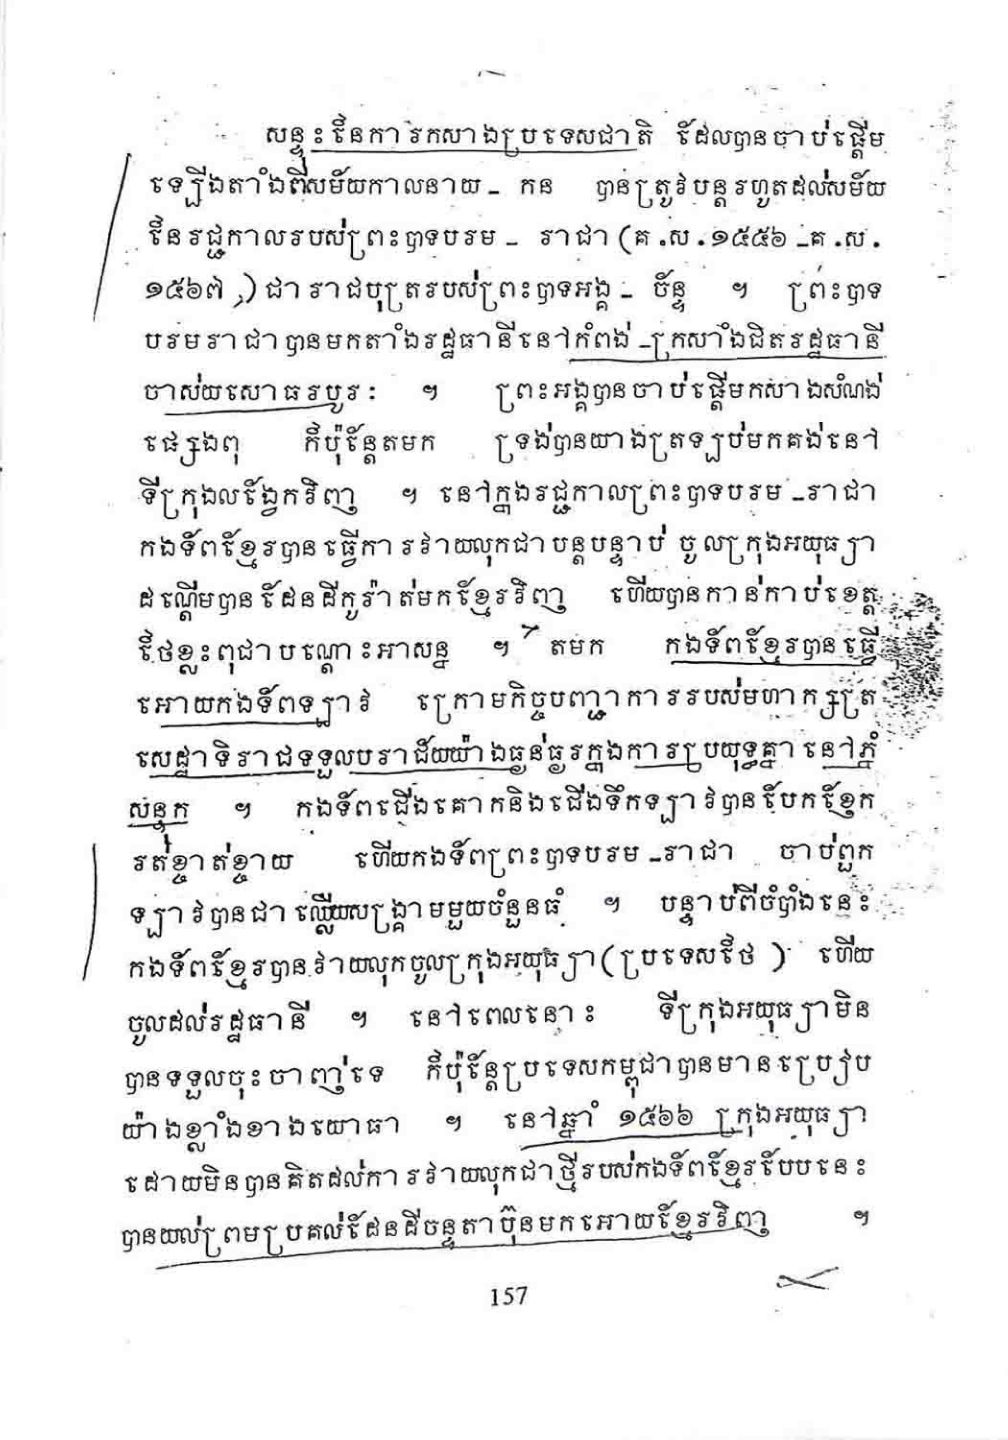 សន្ទុះនៃការកសាងប្រទេសជាតិ ដែលបានចាប់ផ្ដើម
ឡើងតាំងពីសម័យកាលនាយ - កន បានត្រូវបន្តរហូតដល់សម័យ
នៃរជ្ជកាលរបស់ព្រះបាទបរម - រាជា (គ.ស.១៥៥៦ - គ.ស.
១៥៦៧) ជារាជបុត្ររបស់ព្រះបាទអង្គ - ច័ន្ទ ។ ព្រះបាទ
បរមរាជាបានមកតាំងរដ្ឋធានីនៅកំពង់ - ក្រសាំងជិតរដ្ឋធានី
ចាស់យសោធរបូរៈ ។ ព្រះអង្គបានចាប់ផ្ដើមកសាងសំណង់
ផ្សេងពុ ក៏ប៉ុន្តែតមក ទ្រង់បានយាងត្រឡប់មកគង់នៅ
ទីក្រុងលង្វែកវិញ ។ នៅក្នុងរជ្ជកាលព្រះបាទបរម - រាជា
កងទ័ពខ្មែរបានធ្វើការវាយលុកជាបន្តបន្ទាប់ ចូលក្រុងអយុធ្យា
ដណ្ដើមបានដែនដីកូរ៉ាត់មកខ្មែរវិញ ហើយបានកាន់កាប់ខេត្ត
ថៃខ្លះពុជាបណ្ដោះអាសន្ន ។ តមក កងទ័ពខ្មែរបានធ្វើ
អោយកងទ័ពឡាវ ក្រោមកិច្ចបញ្ជាការរបស់មហាក្សត្រ
សេដ្ឋាទិរាជទទួលបរាជ័យយ៉ាងធ្ងន់ធ្ងរក្នុងការប្រយុទ្ធគ្នានៅភ្នំ
សន្ទុក ។ កងទ័ពជើងគោកនិងជើងទឹកឡាវបានបែកខ្ញែក
រត់ខ្ចាត់ខ្ចាយ ហើយកងទ័ពព្រះបាទបរម - រាជា ចាប់ពួក
ឡាវបានជាឈ្លើយសង្គ្រាមមួយចំនួនធំ ។ បន្ទាប់ពីចំបាំងនេះ
កងទ័ពខ្មែរបានវាយលុកចូលក្រុងអយុធ្យា (ប្រទេសថៃ) ហើយ
ចូលដល់រដ្ឋធានី ។ នៅពេលនោះ ទីក្រុងអយុធ្យាមិន
បានទទួលចុះចាញ់ទេ ក៏ប៉ុន្តែប្រទេសកម្ពុជាបានមានប្រៀប
យ៉ាងខ្លាំងខាងយោធា ។ នៅឆ្នាំ ១៥៦៦ ក្រុងអយុធ្យា
ដោយមិនបានគិតដល់ការវាយលុកជាថ្មីរបស់កងទ័ពខ្មែរបែបនេះ
បានយល់ព្រមប្រគល់ដែនដីចន្ទតាប៊ុនមកអោយខ្មែរវិញ ។
157